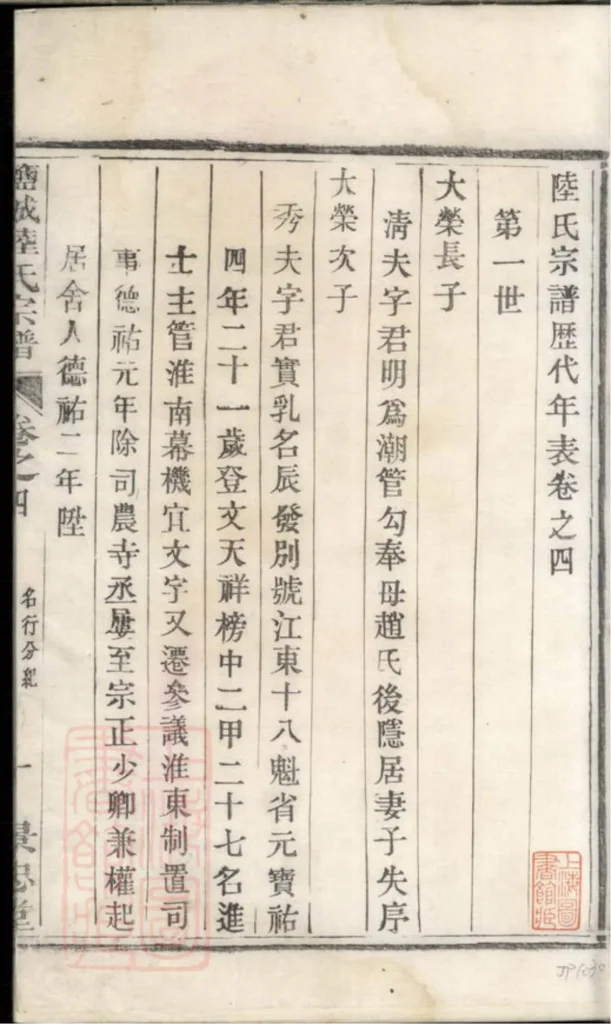 陸氏宗譜歷代年表卷之四
第一世
大榮長子
清夫字君明爲潮管勾奉母趙氏後隱居妻子失序
大榮次子
秀夫字君實乳名辰發別號江東十八魁省元寶祐
四年二十一歲登文天祥榜中二甲二十七名進
士主管淮南幕機宜文字又遷參議淮東制置司
事德祐元年除司農寺丞屢至宗正少卿兼權起
居舍人德祐二年陞
鹽城陸氏宗譜
卷之四
名行分紀
一
景忠堂
上海圖書館藏